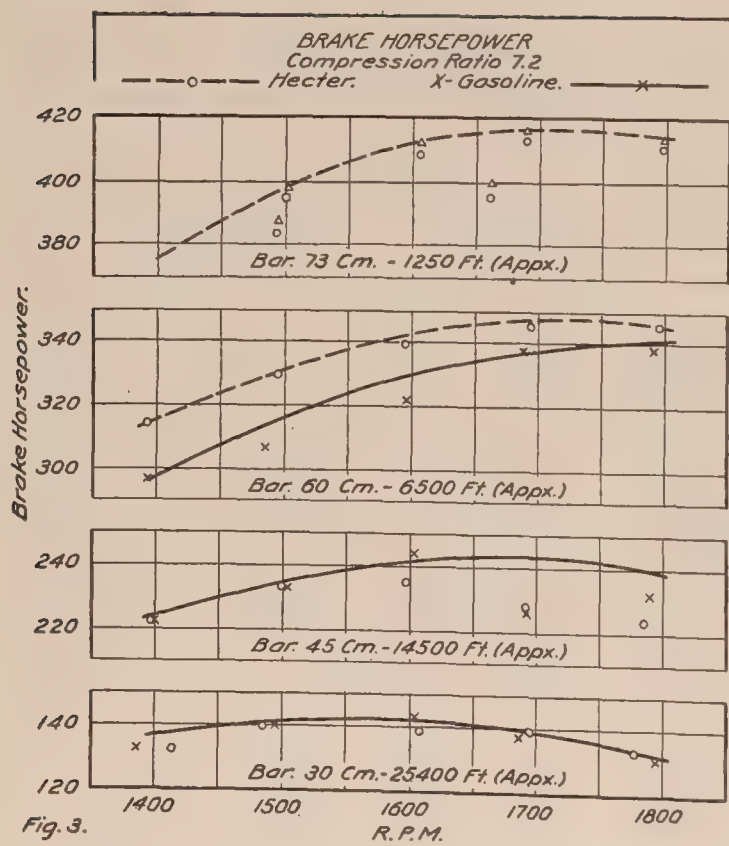 BRAKE HORSEPOWER
Compression Ratio 7.2
Hecter. X-Gasoline.
420
400
380
Bar. 73 Cm. - 1250 Ft. (Appx.)
340
320
300
Bar. 60 Cm. - 6500 Ft. (Appx.)
240
220
Bar. 45 Cm. - 14500 Ft. (Appx.)
140
120
Bar. 30 Cm. - 25400 Ft. (Appx.)
Brake Horsepower.
1400 1500 1600 1700 1800
R.P.M.
Fig. 3.